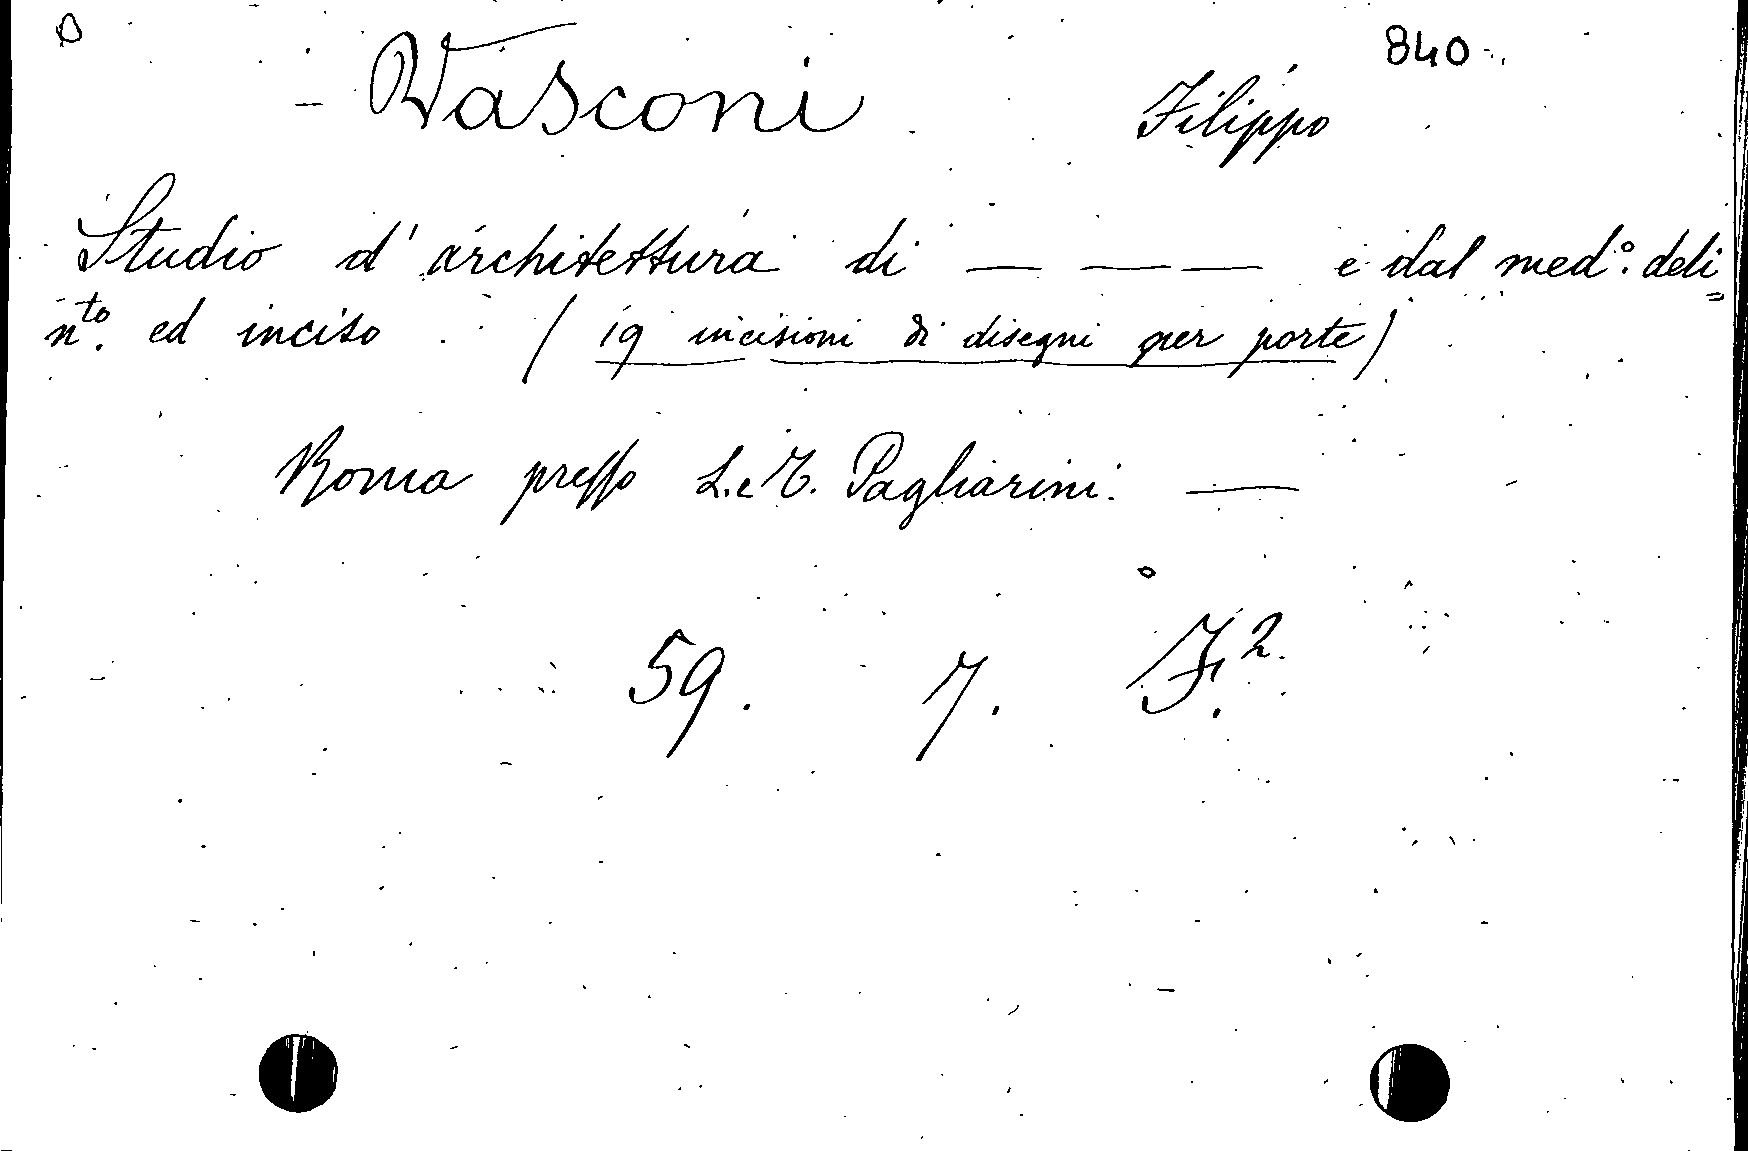 840
Vasconi Filippo
Studio d'architettura di — — — e dal med.º deli=
n.to ed inciso (19 incisioni di disegni per porte)
Roma presso L. e T. Pagliarini. —
59. 7. F.2.